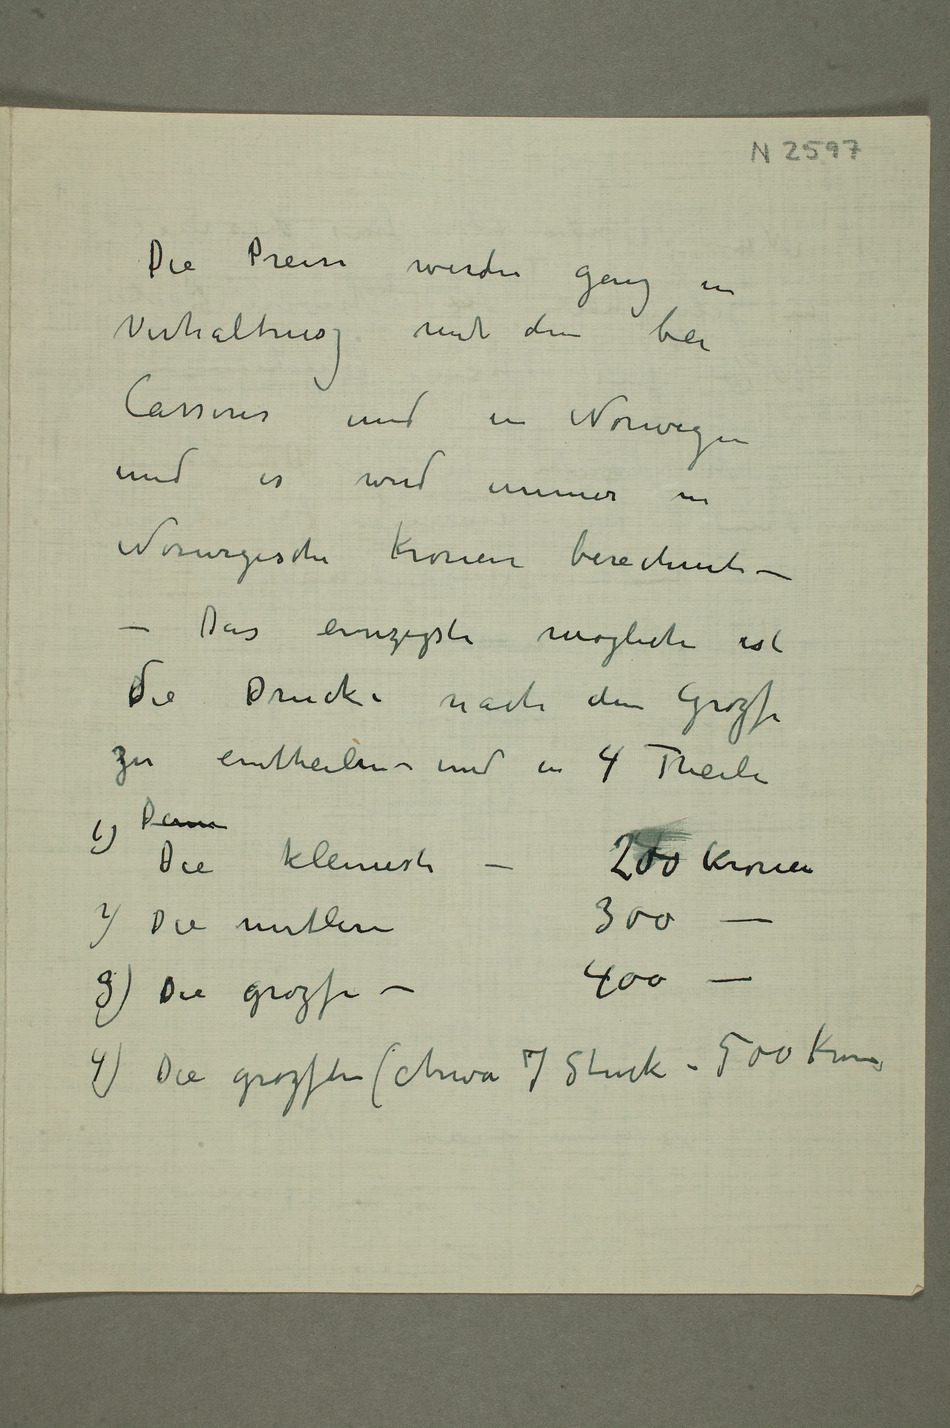 N 2597
Die Preise werden ganz in
Verhältnisz mit dem bei
Cassirer und in Norwegen
und es wird immer in
Norwegische Kronen berechnet –
– Das einzigste mögliche ist
die Drucke nach dem Grozse
zu eintheilen – und in 4 Theile
1) Dann
Die kleineste – 200 Kronen
2) Die mitlere 300 —
3) Die grozse – 400 —
4) Die grozsten (etwa 7 Stück – 500 Kronen